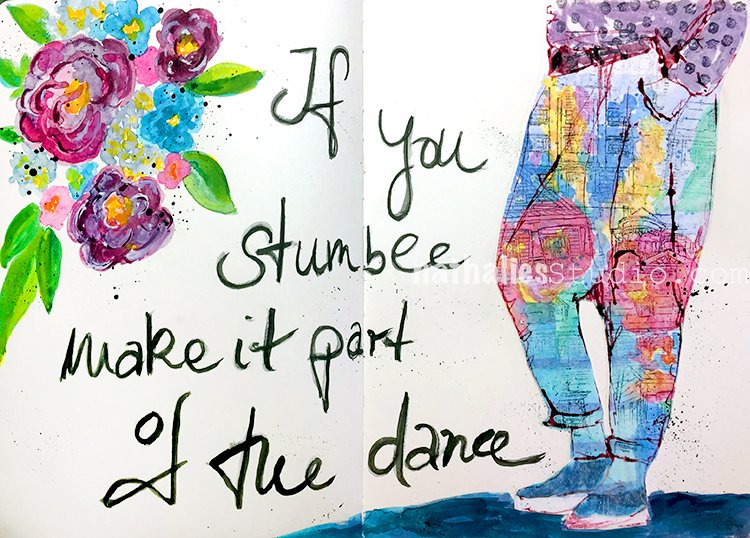 If
you
stumble
make it part
of the dance
nathaliesstudio.com